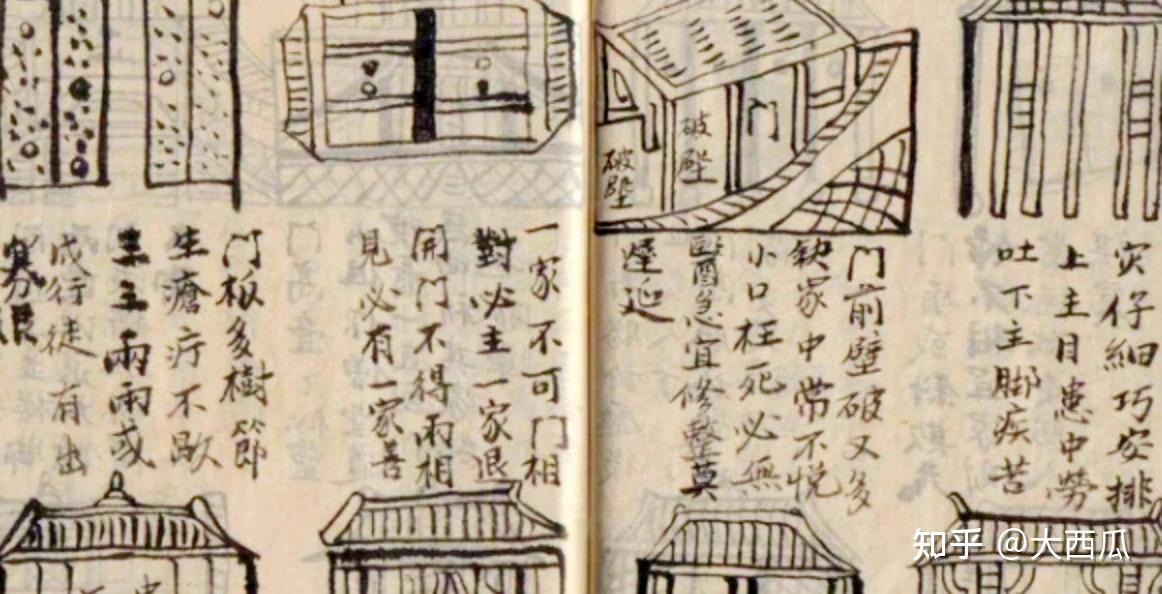 灾仔細巧安排
上主目患中勞
吐下主脚疾苦
门
破壁
破壁
门前壁破又多
缺家中常不悦
小口枉死必無
醫急宜修整莫
延
一家不可门相
對必主一家退
開门不得兩相
見必有一家善
门板多樹節
生瘡疔不歇
三三兩兩或
成行徒有出
知乎 @大西瓜